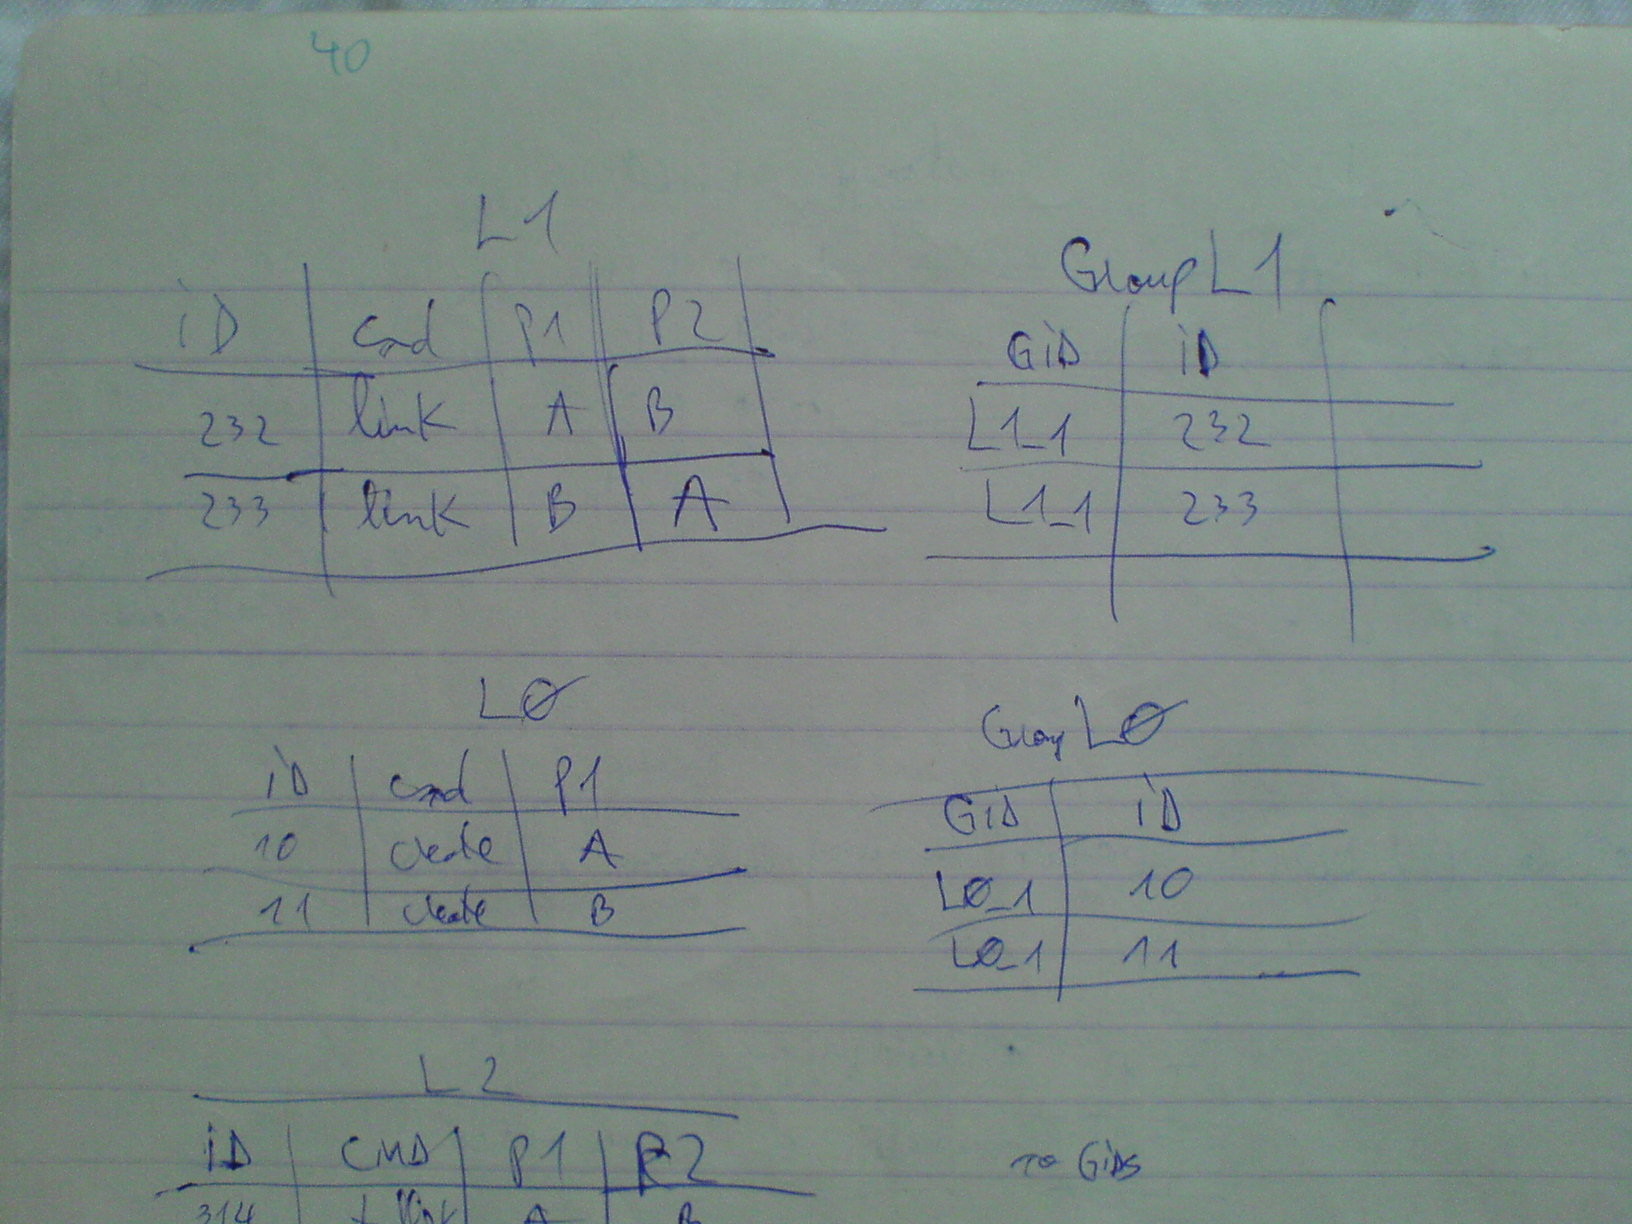 40
L1
iD cmd P1 P2
232 link A B
233 link B A
Group L1
GiD iD
L1_1 232
L1_1 233
LØ
iD cmd P1
10 create A
11 create B
Group LØ
GiD iD
LØ_1 10
LØ_1 11
L2
iD CMD P1 P2
314 link A B
GiDs